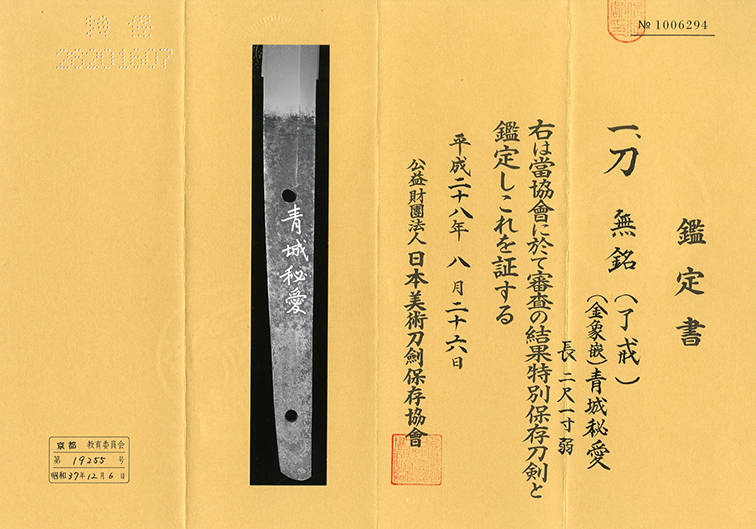 № 1006294
鑑定書
一、刀 無銘(了戒)
(金象嵌)青城秘愛
長 二尺一寸弱
右は當協會に於て審査の結果特別保存刀剣と
鑑定しこれを証する
平成二十八年 八月二十六日
公益財團法人 日本美術刀劍保存協會
青城秘愛
特保
28201607
京都 教育委員会
第 19255 号
昭和37年12月6日